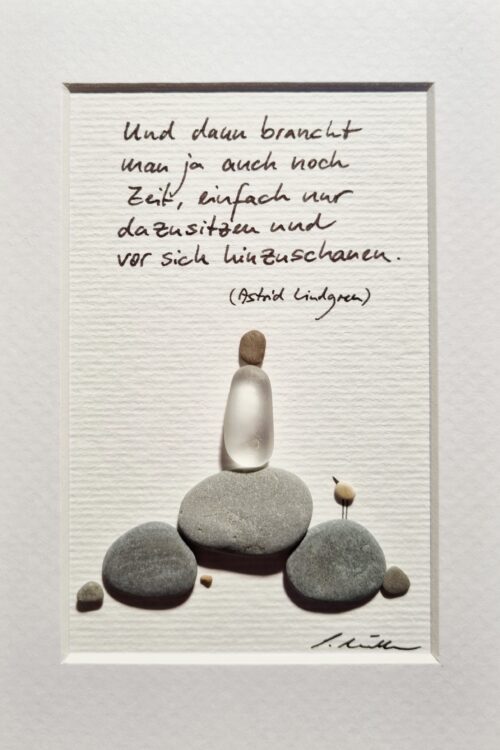 Und dann braucht
man ja auch noch
Zeit, einfach nur
dazusitzen und
vor sich hinzuschauen.
(Astrid Lindgren)